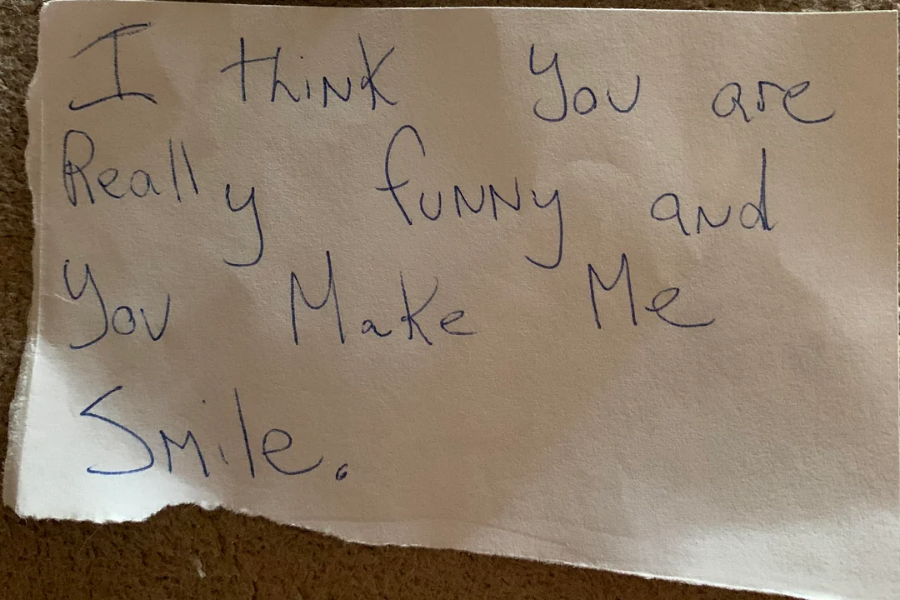 I think You are
Really funny and
You Make Me
Smile.